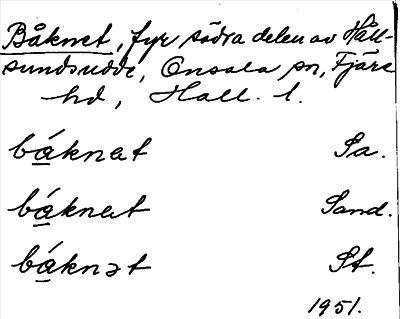 Båknet, fyr södra delen av Håll-
sundsudde, Onsala sn, Fjäre
hd, Hall. l.
bá̲knat Sa.
bá̲knat Sand.
bá̲knət St.
1951.